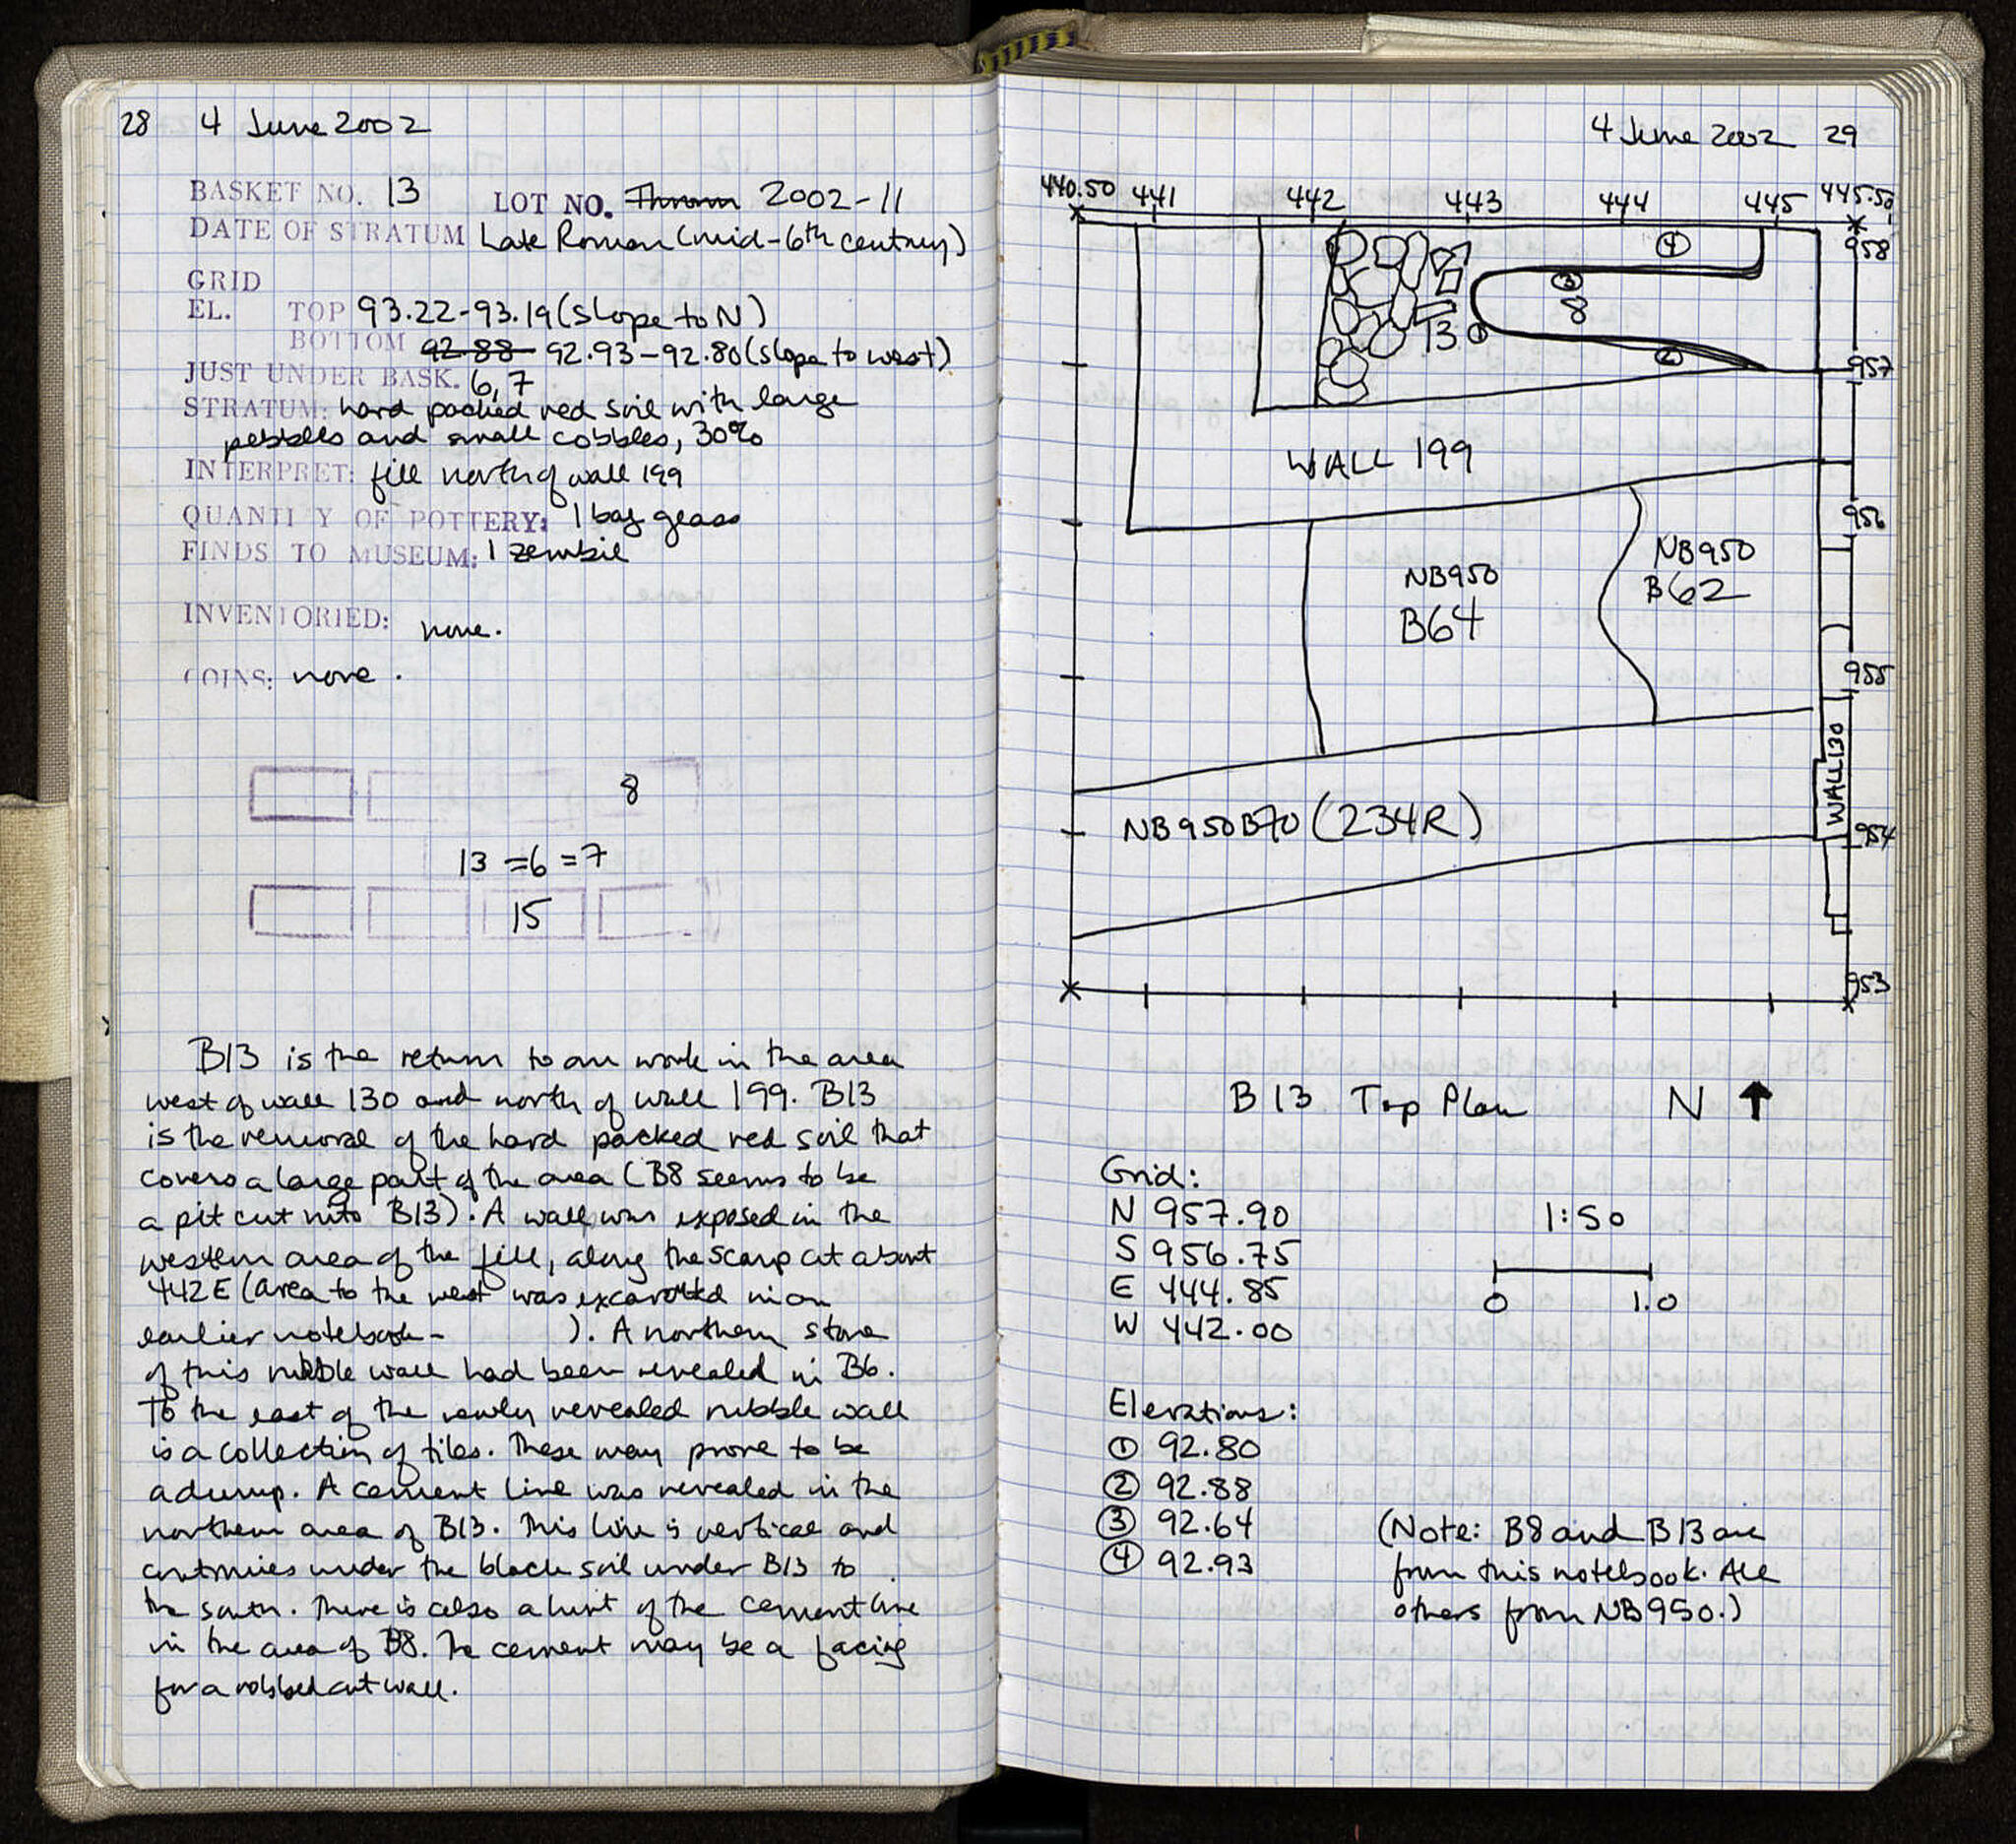 28 4 June 2002
BASKET NO. 13 LOT NO. 2002-11
DATE OF STRATUM Late Roman (mid-6th century)
GRID
EL. TOP 93.22-93.19 (slope to N)
BOTTOM 92.88 92.93-92.80 (slope to west)
JUST UNDER BASK. 6,7
STRATUM: hard packed red soil with large
pebbles and small cobbles, 30%
INTERPRET: fill north of wall 199
QUANTITY OF POTTERY: 1 bag glass
FINDS TO MUSEUM: 1 zembil
INVENTORIED: none.
COINS: none.
8
13 =6 =7
15
B13 is the return to our work in the area
west of wall 130 and north of wall 199. B13
is the removal of the hard packed red soil that
covers a large part of the area (B8 seems to be
a pit cut into B13). A wall was exposed in the
western area of the fill, along the scarp at about
442E (area to the west was excavated in an
earlier notebook- ). A northern stone
of this rubble wall had been revealed in B6.
To the east of the newly revealed rubble wall
is a collection of tiles. These may prove to be
a dump. A cement line was revealed in the
northern area of B13. This line is vertical and
continues under the black soil under B13 to
the south. There is also a hint of the cement line
in the area of B8. The cement may be a facing
for a robbed out wall.
4 June 2002 29
440.50 441 442 443 444 445 445.50
958
4
3
8
13 1
2
957
WALL 199
956
NB950
B62
NB950
B64
955
WALL 130
NB950B70 (234R)
954
953
B13 Top Plan N ↑
Grid:
N 957.90
S 956.75
E 444.85
W 442.00
1:50
0 1.0
Elevations:
① 92.80
② 92.88
③ 92.64
④ 92.93
(Note: B8 and B13 are
from this notebook. All
others from NB950.)